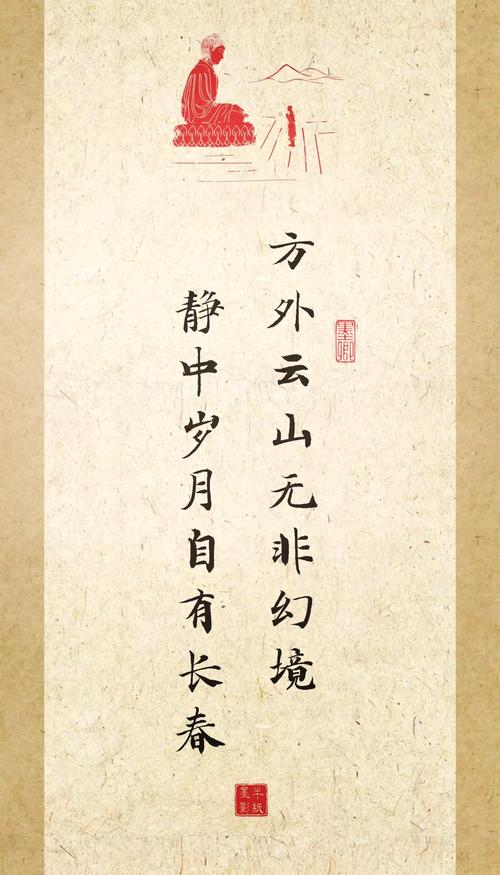 方外云山无非幻境
静中岁月自有长春
墨卿
半纸
墨影